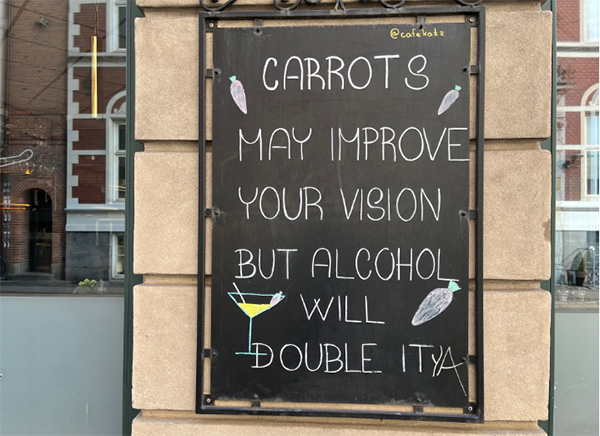 @cafekatz
CARROTS
MAY IMPROVE
YOUR VISION
BUT ALCOHOL
WILL
DOUBLE IT YA